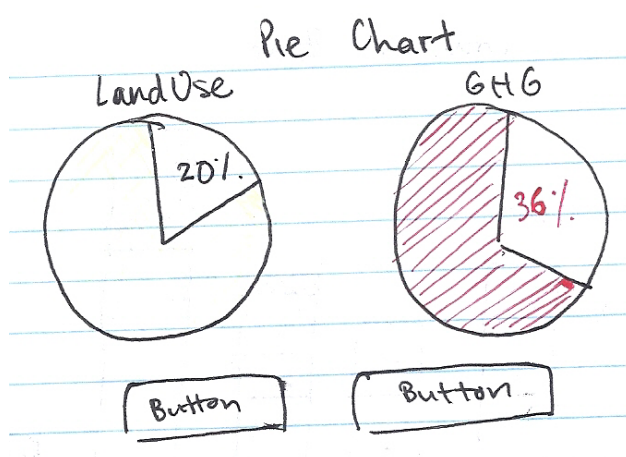 Pie Chart
Land Use
GHG
20%.
36%.
Button
Button